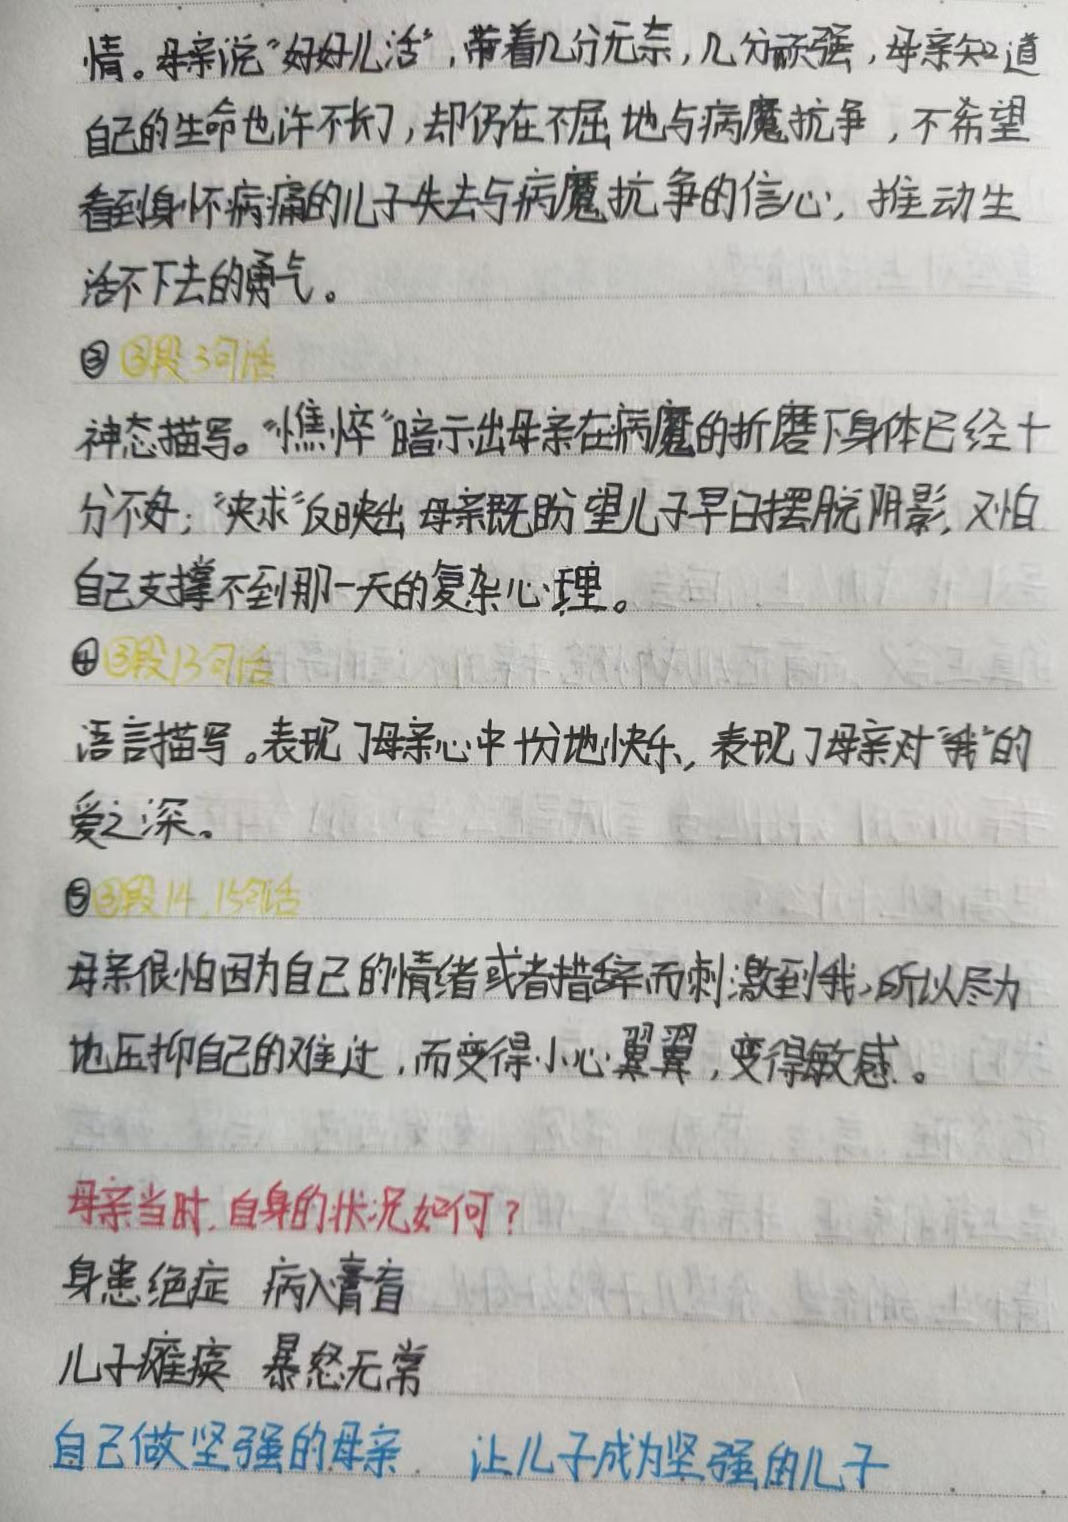 情。母亲说“好好儿活”，带着几分无奈，几分顽强，母亲知道
自己的生命也许不长了，却仍在不屈地与病魔抗争，不希望
看到身怀病痛的儿子失去与病魔抗争的信心，推动生
活不下去的勇气。
③ ③段3句话
神态描写。“憔悴”暗示出母亲在病魔的折磨下身体已经十
分不好；“央求”反映出母亲既盼望儿子早日摆脱阴影，又怕
自己支撑不到那一天的复杂心理。
④ ③段13句话
语言描写。表现了母亲心中十分地快乐，表现了母亲对“我”的
爱之深。
⑤ ③段14，15句话
母亲很怕因为自己的情绪或者措辞而刺激到我，所以尽力
地压抑自己的难过，而变得小心翼翼，变得敏感。
母亲当时，自身的状况如何？
身患绝症 病入膏肓
儿子瘫痪 暴怒无常
自己做坚强的母亲 让儿子成为坚强的儿子